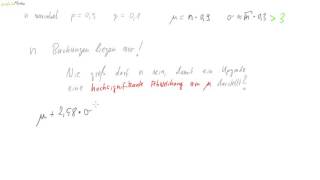 n maximal p = 0,9 q = 0,1 μ = n · 0,9 σ = √n · 0,3 > 3
n Buchungen liegen vor!
Wie groß darf n sein, damit ein Upgrade
eine hochsignifikante Abweichung von μ darstellt?
μ + 2,58 · σ